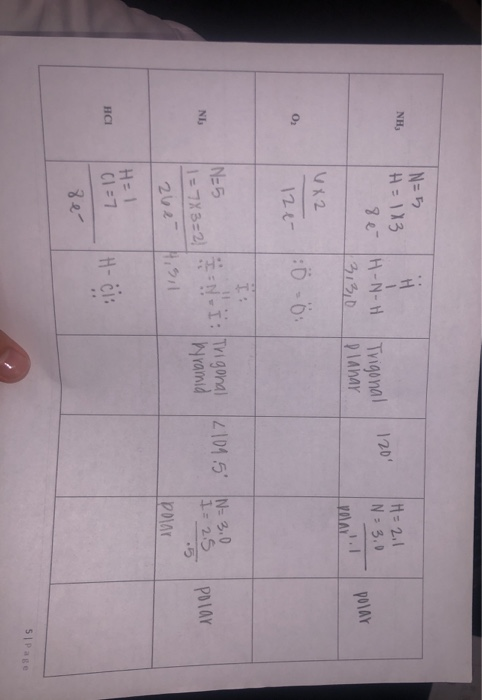 NH₃
N=5
H=1x3
8e⁻
H
H-N-H
3,3,0
Trigonal
planar
120°
H=2.1
N=3.0
1.1
polar
polar
O₂
6x2
12e⁻
:Ö=Ö:
NI₃
N=5
I=7x3=21
26e⁻
:I:
:I=N=I:
4,3,1
Trigonal
pyramid
<109.5°
N=3.0
I=2.5
.5
polar
polar
HCl
H=1
Cl=7
8e⁻
H-Cl:
5|Page